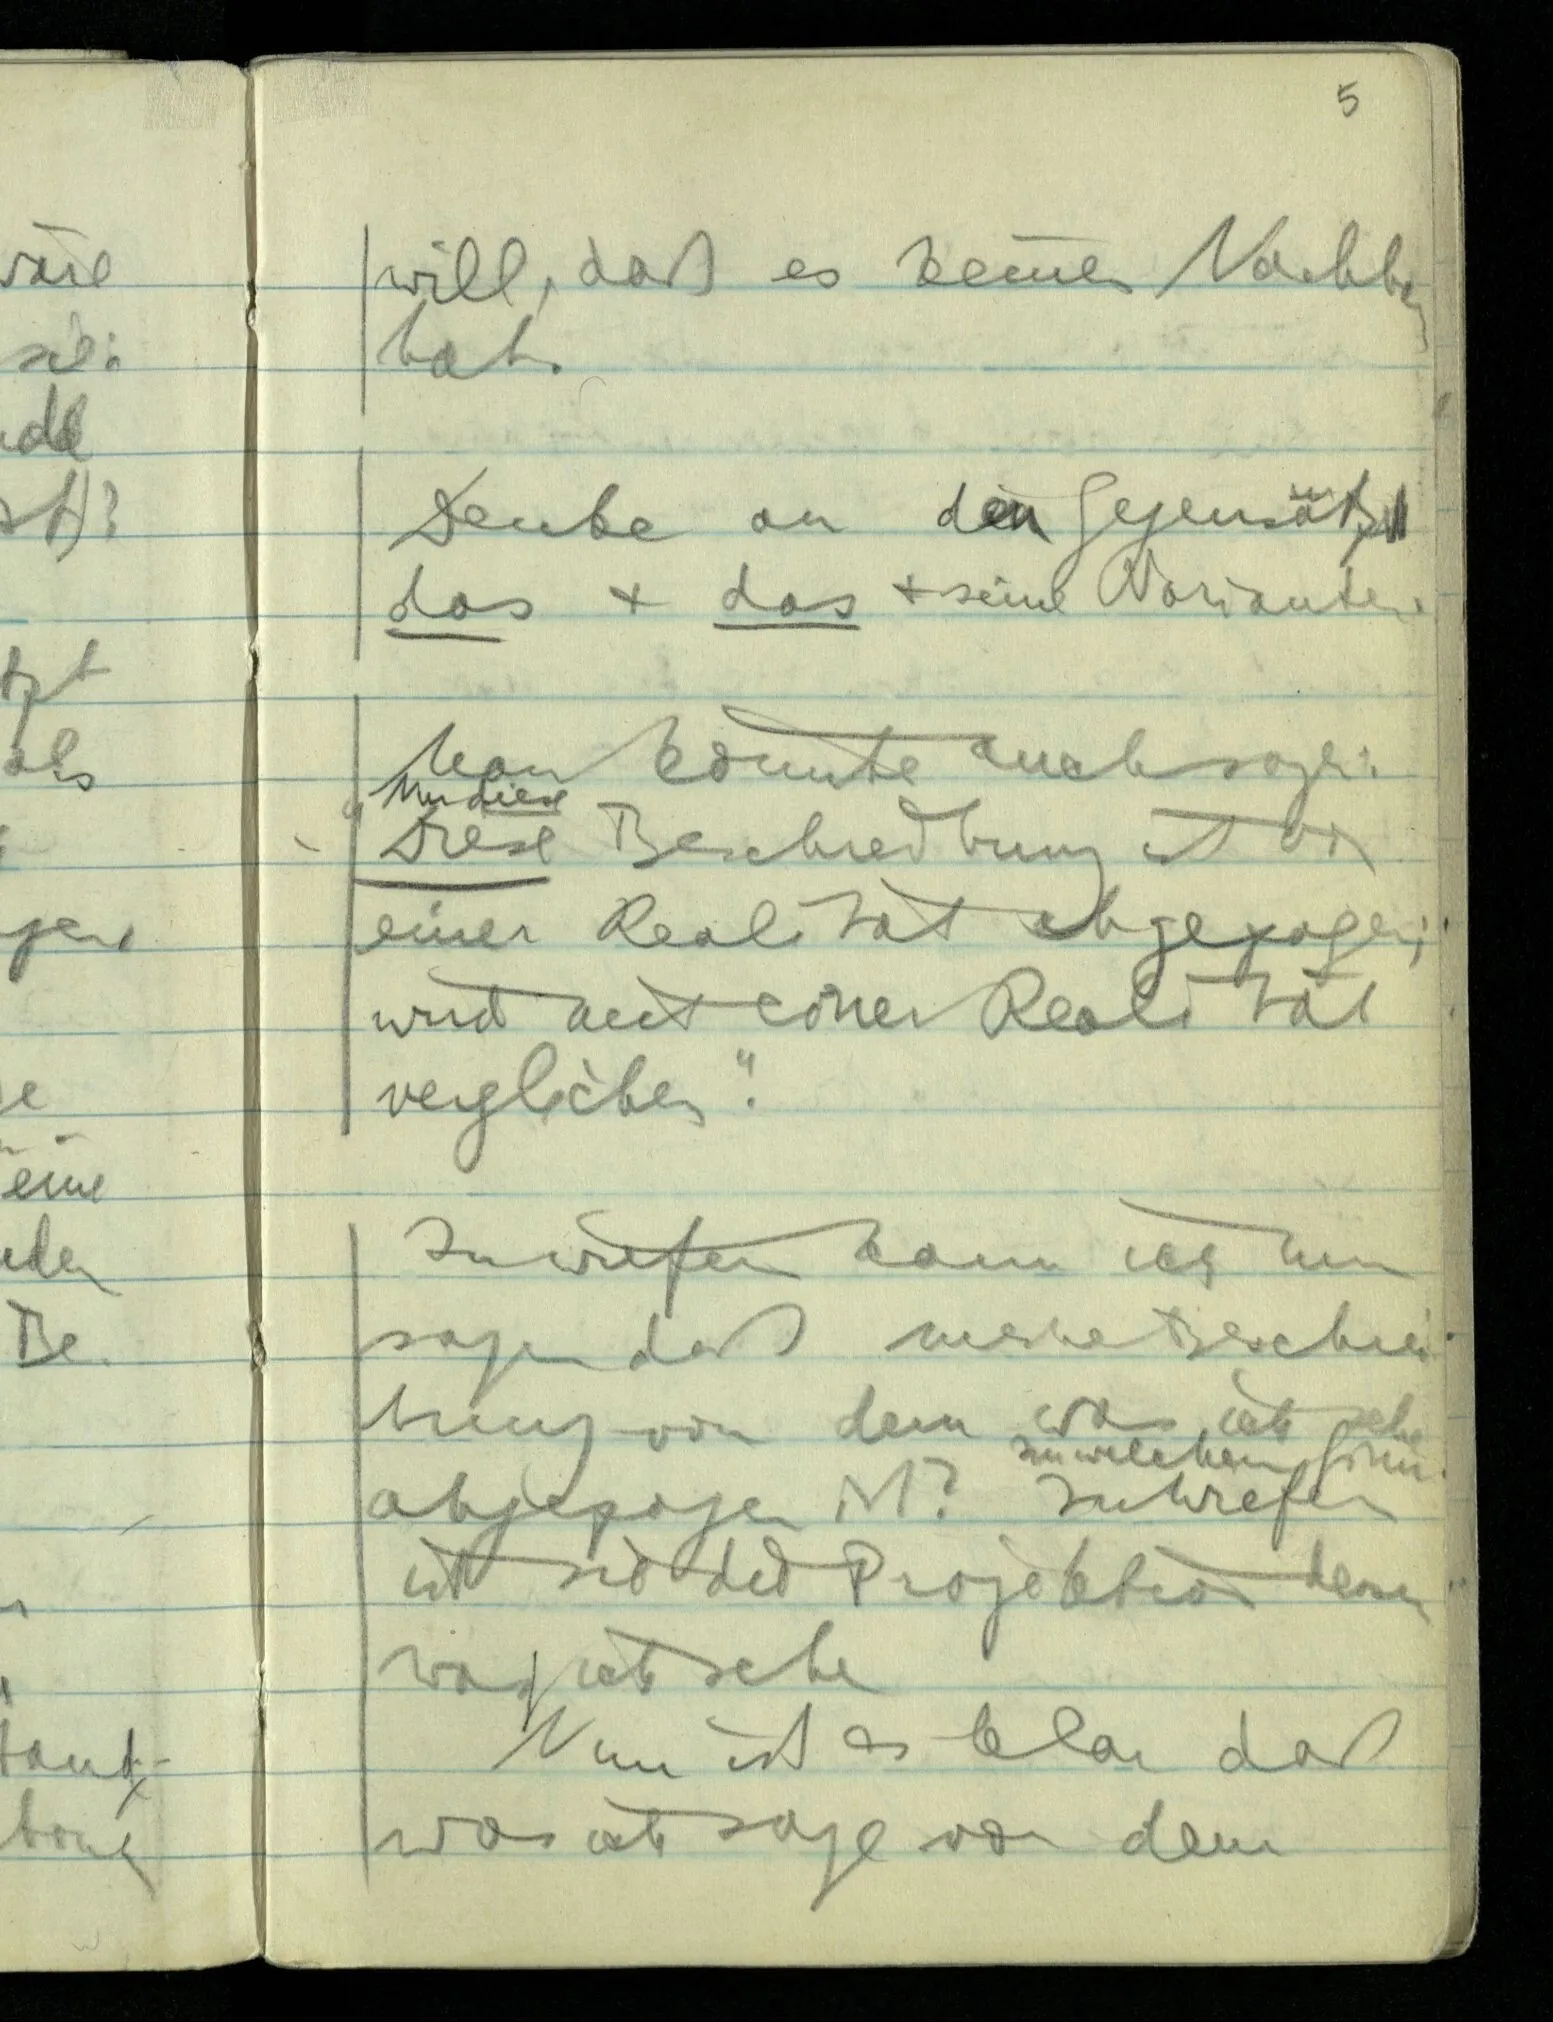 5
will, daß es keinen Nachbar
hat.
Denke an den Gegensatz
das + das + seine Varianten.
Man könnte auch sagen:
Nur diese
„Diese Beschreibung ist von
einer Realität abgezogen;
wird mit einer Realität
verglichen“.
Inwiefern kann ich nun
sagen daß meine Beschrei
bung von dem was ich sehe
in welchem Sinn
abgezogen ist? Inwiefern
ist sie die Projektion dessen
was ich sehe
Nun ist es klar daß
was ich sage von dem
wäre
sie:
als
eine
Be